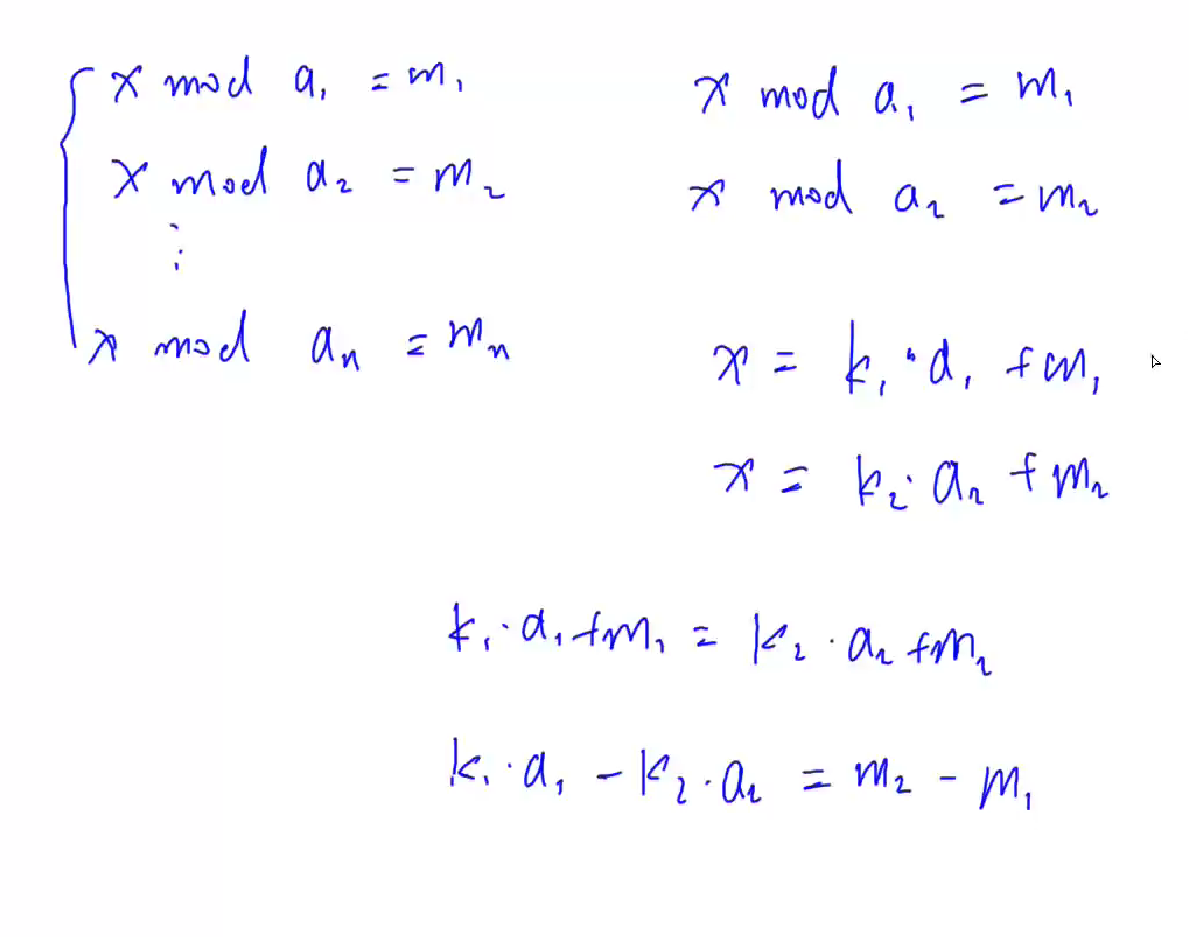 x mod a₁ = m₁
x mod a₂ = m₂
⋮
x mod aₙ = mₙ
x mod a₁ = m₁
x mod a₂ = m₂
x = k₁·a₁ + m₁
x = k₂·a₂ + m₂
k₁·a₁ + m₁ = k₂·a₂ + m₂
k₁·a₁ − k₂·a₂ = m₂ − m₁